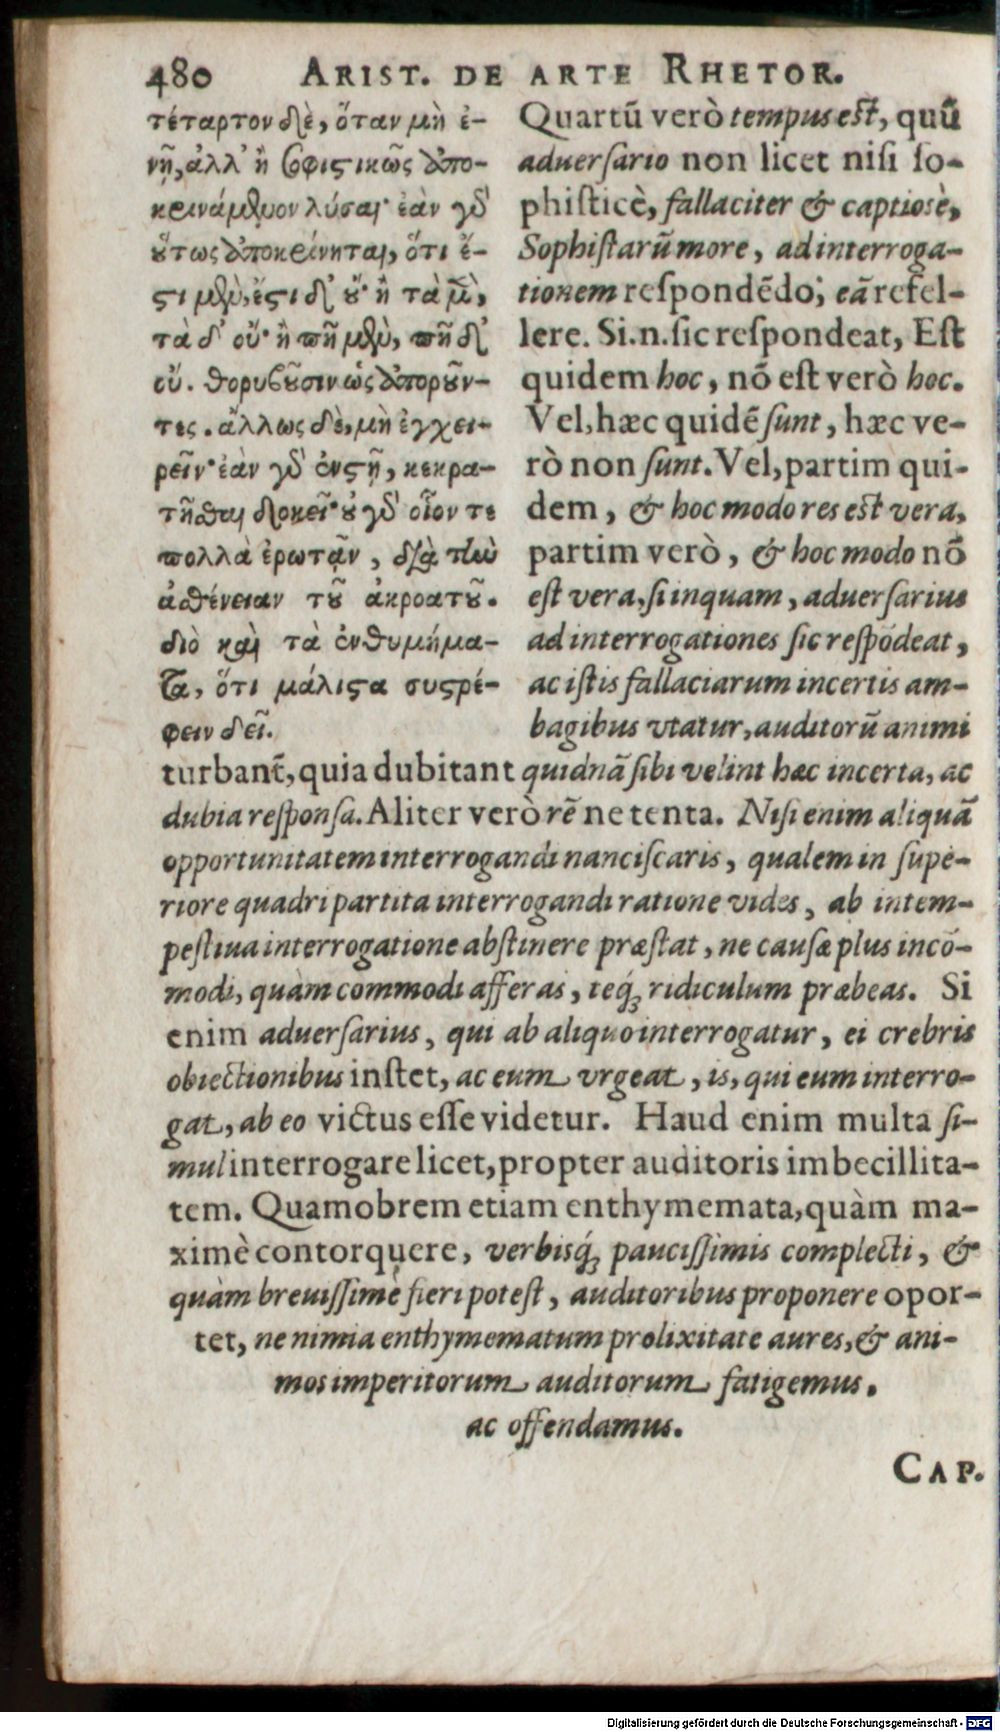 480 ARIST. DE ARTE RHETOR.
τέταρτον δὲ, ὅταν μὴ ἐ-
νῇ, ἀλλ’ ἢ σοφιστικῶς ἀπο-
κρινάμενον λύσαι· ἐὰν γὸ
οὕτως ἀποκρίνηται, ὅτι ἔ-
στι μὲν, ἔστι δ’ οὔ· ἢ τὰ μὲν,
τὰ δ’ οὔ· ἢ πῆ μὲν, πῆ δ’
οὔ. θορυβοῦσιν ὡς ἀποροῦν-
τες. ἄλλως δὲ, μὴ ἐγχει-
ρεῖν· ἐὰν γὸ ἐνστῇ, κεκρα-
τῆσθαι δοκεῖ· οὐ γὸ οἷον τε
πολλὰ ἐρωτᾷν, διὰ τὴν
ἀσθένειαν τοῦ ἀκροατοῦ.
διὸ καὶ τὰ ἐνθυμήμα-
τα, ὅτι μάλιστα συστρέ-
φειν δεῖ.
Quartũ verò tempus est, quũ
aduersario non licet nisi so-
phisticè, fallaciter & captiosè,
Sophistarũ more, ad interroga-
tionem respondẽdo, eã refel-
lere. Si.n.sic respondeat, Est
quidem hoc, nõ est verò hoc.
Vel, hæc quidẽ sunt, hæc ve-
rò non sunt. Vel, partim qui-
dem, & hoc modo res est vera,
partim verò, & hoc modo nõ
est vera, si inquam, aduersarius
ad interrogationes sic respõdeat,
ac istis fallaciarum incertis am-
bagibus vtatur, auditorũ animi
turbant̃, quia dubitant quidnã sibi velint hæc incerta, ac
dubia responsa. Aliter verò rẽ ne tenta. Nisi enim aliquã
opportunitatem interrogandi nanciscaris, qualem in supe-
riore quadripartita interrogandi ratione vides, ab intem-
pestiua interrogatione abstinere præstat, ne causæ plus incõ-
modi, quàm commodi afferas, teq́; ridiculum præbeas. Si
enim aduersarius, qui ab aliquo interrogatur, ei crebris
obiectionibus instet, ac eum vrgeat, is, qui eum interro-
gat, ab eo victus esse videtur. Haud enim multa si-
mul interrogare licet, propter auditoris imbecillita-
tem. Quamobrem etiam enthymemata, quàm ma-
ximè contorquere, verbisq́; paucissimis complecti, &
quàm breuissimè fieri potest, auditoribus proponere opor-
tet, ne nimia enthymematum prolixitate aures, & ani-
mos imperitorum auditorum fatigemus,
ac offendamus.
CAP.
Digitalisierung gefördert durch die Deutsche Forschungsgemeinschaft - DFG